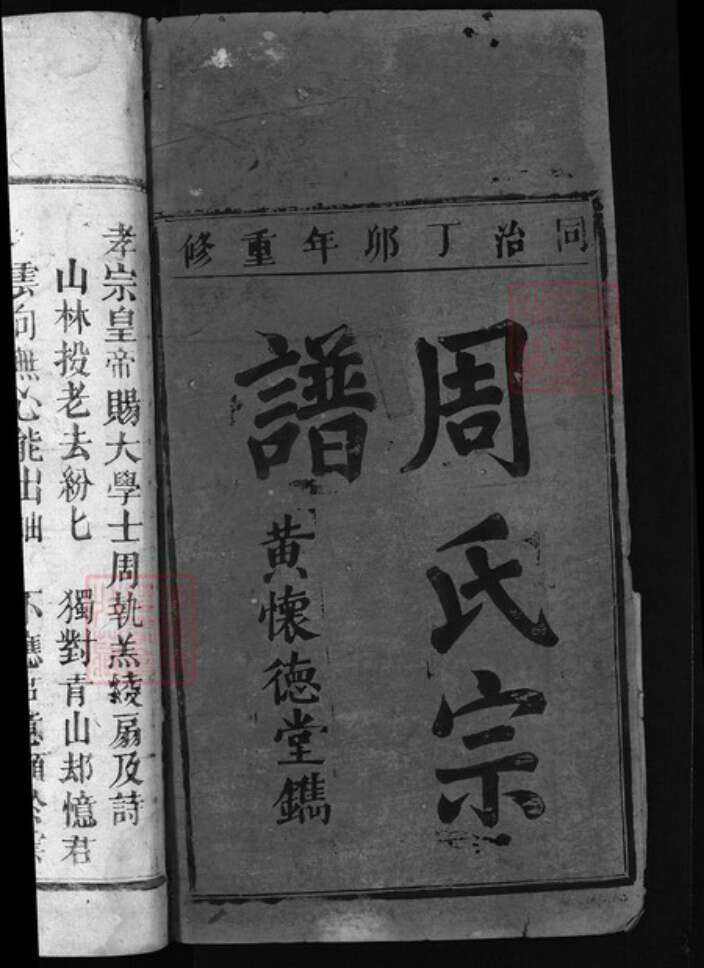 同治丁卯年重修
周氏宗
譜
黄懷德堂鐫
孝宗皇帝賜大學士周執羔綾扇及詩
山林投老去紛匕 獨對青山却憶君
雲向無心能出岫 不應